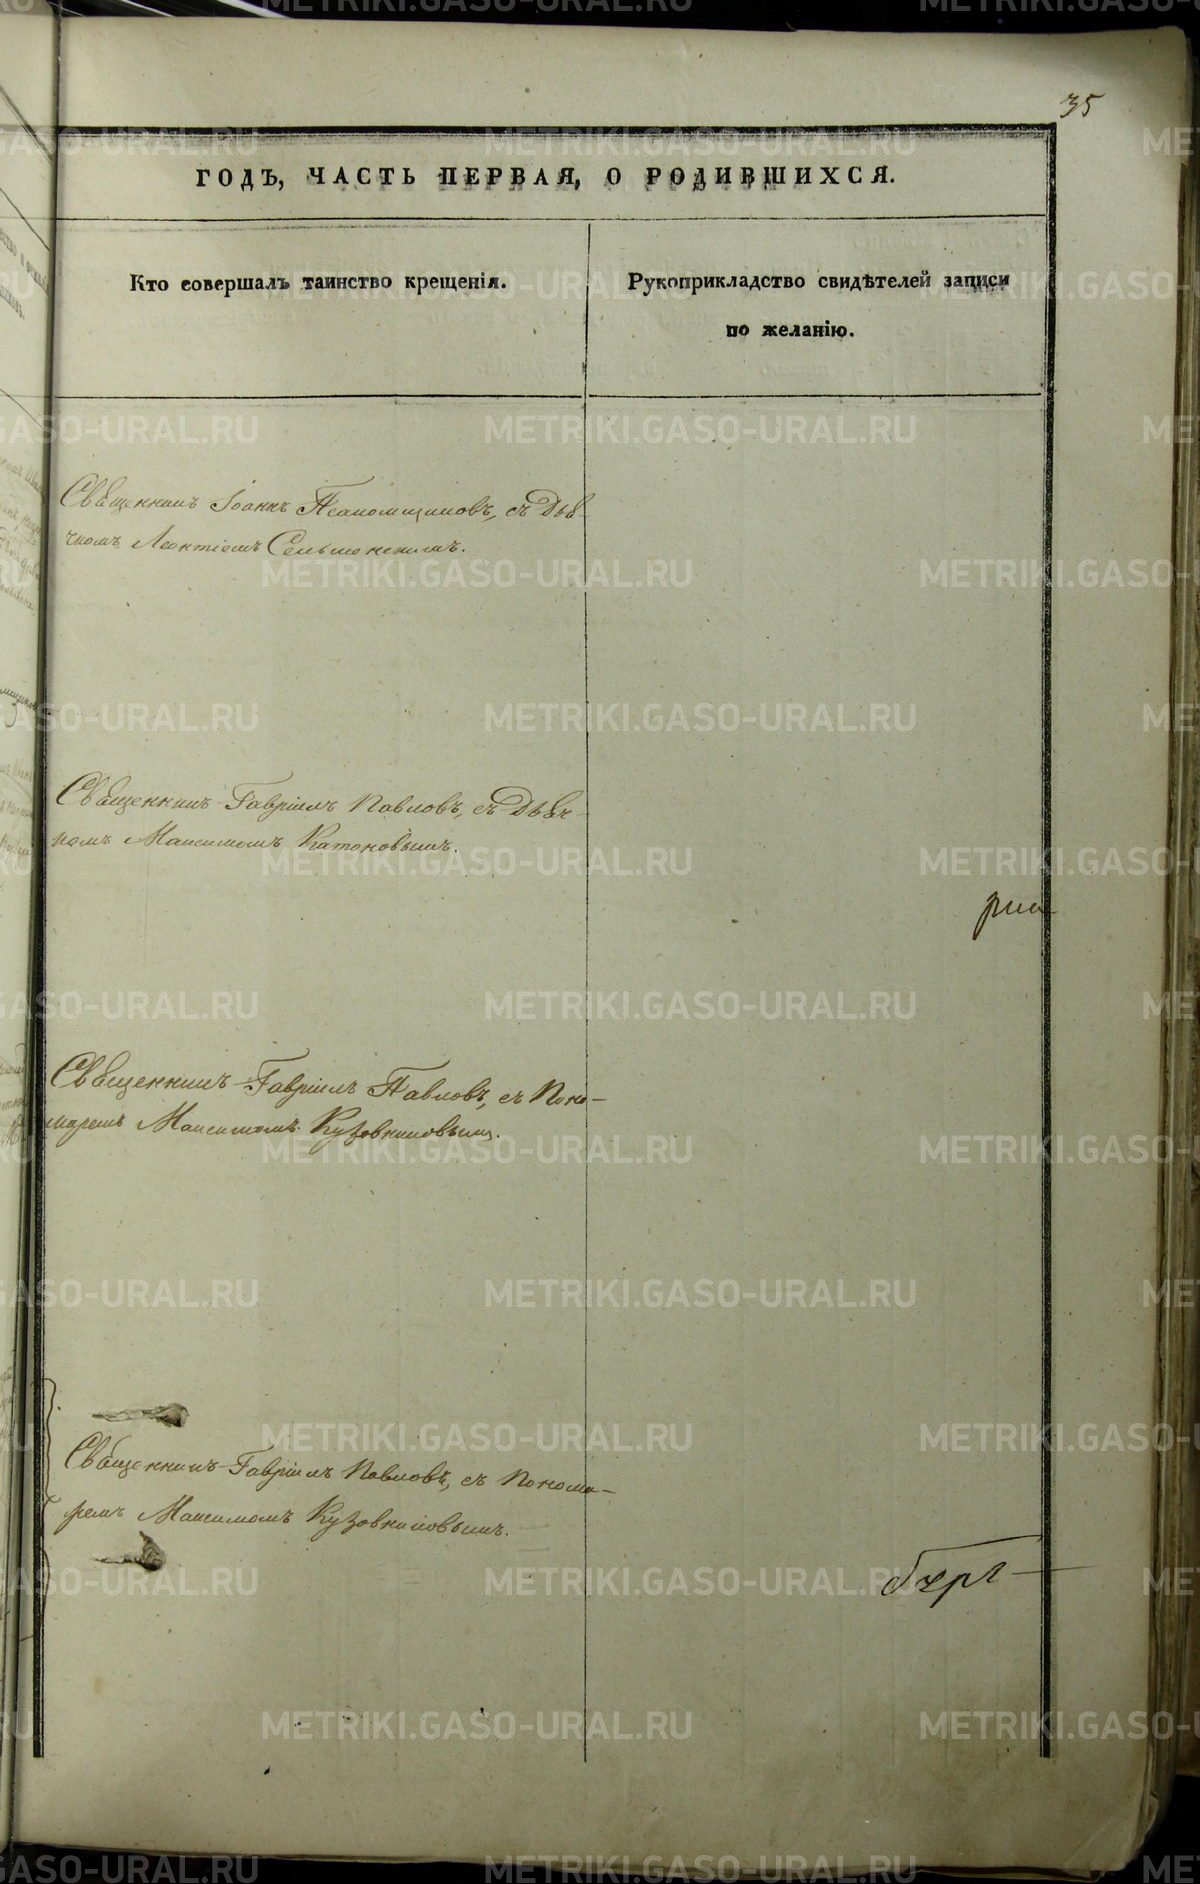 35
ГОДЪ, ЧАСТЬ ПЕРВАЯ, О РОДИВШИХСЯ.
Кто совершалъ таинство крещенія.
Рукоприкладство свидѣтелей записи
по желанію.
Священникъ Іоаннъ Псаломщиковъ, съ Дья-
чкомъ Леонтіемъ
Священникъ Гавріилъ Павловъ, съ Дьяч-
комъ Максимомъ Катоновымъ.
Священникъ Гавріилъ Павловъ, съ Поно-
маремъ Максимомъ Кузовниковымъ.
Священникъ Гавріилъ Павловъ, съ Понома-
ремъ Максимомъ Кузовниковымъ.
METRIKI.GASO-URAL.RU